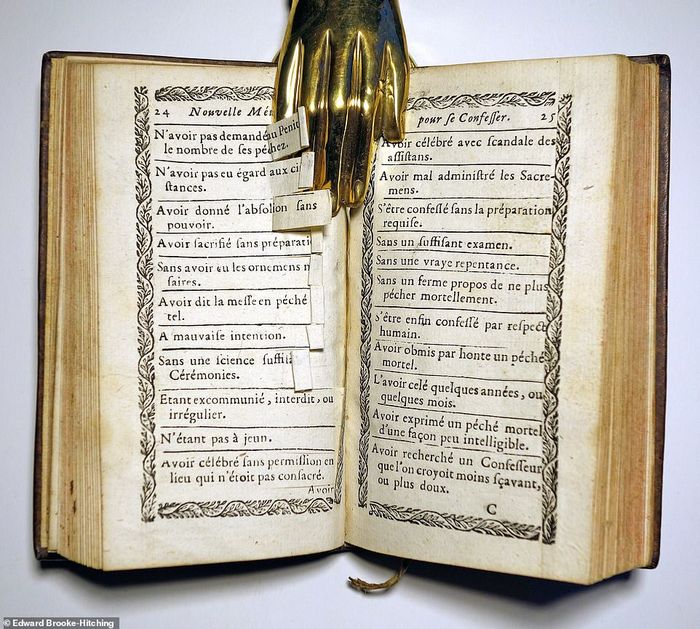 24 Nouvelle Mé
N'avoir pas demandé au Penit
le nombre de ſes péchez.
N'avoir pas eu égard aux ci
ſtances.
Avoir donné l'abſolion ſans
pouvoir.
Avoir ſacrifié ſans préparati
Sans avoir eu les ornemens n
ſaires.
Avoir dit la meſſe en péché
tel.
A mauvaiſe intention.
Sans une ſcience ſuffiſ
Cérémonies.
Etant excommunié, interdit, ou
irrégulier.
N'étant pas à jeun.
Avoir célébré ſans permiſſion en
lieu qui n'étoit pas conſacré.
Avoir
pour ſe Confeſſer. 25
Avoir célébré avec ſcandale des
aſſiſtans.
Avoir mal adminiſtré les Sacre-
mens.
S'être confeſſé ſans la préparation
requiſe.
Sans un ſuffiſant examen.
Sans une vraye repentance.
Sans un ferme propos de ne plus
pécher mortellement.
S'être enfin confeſſé par reſpect
humain.
Avoir obmis par honte un péché
mortel.
L'avoir celé quelques années, ou
quelques mois.
Avoir exprimé un péché mortel
d'une façon peu intelligible.
Avoir recherché un Confeſſeur
que l'on croyoit moins ſçavant,
ou plus doux.
C
© Edward Brooke-Hitching